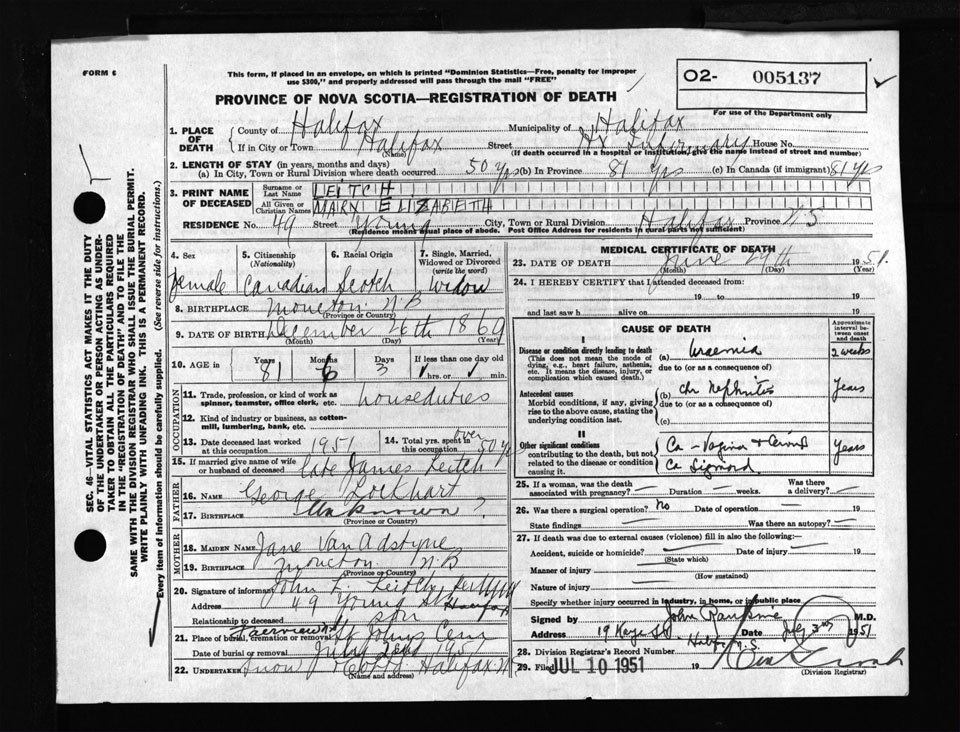 FORM 6
This form, if placed in an envelope, on which is printed "Dominion Statistics—Free, penalty for improper
use $300," and properly addressed will pass through the mail "FREE"
O2- 005137
For use of the Department only
PROVINCE OF NOVA SCOTIA—REGISTRATION OF DEATH
1. PLACE OF DEATH
County of Halifax Municipality of Halifax
If in City or Town Halifax Street Hx Infirmary House No.
(Name) (If death occurred in a hospital or institution, give the name instead of street and number)
2. LENGTH OF STAY (in years, months and days)
(a) In City, Town or Rural Division where death occurred 50 yrs (b) In Province 81 yrs (c) In Canada (if immigrant) 81 yrs
3. PRINT NAME OF DECEASED
Surname or Last Name LEITCH
All Given or Christian Names MARY ELIZABETH
RESIDENCE No. 49 Street Young City, Town or Rural Division Halifax Province N.S
(Residence means usual place of abode. Post Office Address for residents in rural parts not sufficient)
4. Sex Female
5. Citizenship (Nationality) Canadian
6. Racial Origin Scotch
7. Single, Married, Widowed or Divorced (write the word) Widow
8. BIRTHPLACE Moncton N.B
(Province or Country)
9. DATE OF BIRTH December 26th 1869
(Month) (Day) (Year)
10. AGE in Years 81 Months 6 Days 3 If less than one day old hrs. or min.
OCCUPATION
11. Trade, profession, or kind of work as spinner, teamster, office clerk, etc. houseduties
12. Kind of industry or business, as cotton-mill, lumbering, bank, etc.
13. Date deceased last worked at this occupation 1951
14. Total yrs. spent in this occupation over 50 yrs
15. If married give name of wife or husband of deceased Late James Leitch
FATHER
16. NAME George Lockhart
17. BIRTHPLACE Unknown ?
(Province or Country)
MOTHER
18. MAIDEN NAME Jane Van Adstyne
19. BIRTHPLACE Moncton N.B
(Province or Country)
20. Signature of informant John L. Leitch
Address 49 Young St Halifax
Relationship to deceased son
21. Place of burial, cremation or removal Fairview St Johns Cem
Date of burial or removal July 2nd 1951
22. UNDERTAKER Snow Halifax N.S
(Name and address)
MEDICAL CERTIFICATE OF DEATH
23. DATE OF DEATH June 29th 1951
(Month) (Day) (Year)
24. I HEREBY CERTIFY that I attended deceased from:
19 to 19
and last saw h alive on 19
CAUSE OF DEATH
Approximate interval between onset and death
I
Disease or condition directly leading to death (a) Uraemia 2 weeks
(This does not mean the mode of dying, e.g., heart failure, asthenia, etc. It means the disease, injury, or complication which caused death.)
due to (or as a consequence of)
Antecedent causes (b) Chr Nephritis Years
Morbid conditions, if any, giving rise to the above cause, stating the underlying condition last.
due to (or as a consequence of)
(c)
II
Other significant conditions contributing to the death, but not related to the disease or condition causing it.
Ca - Vagina & Cervix Years
Ca Sigmoid
25. If a woman, was the death associated with pregnancy? Duration weeks. Was there a delivery?
26. Was there a surgical operation? No Date of operation 19
State findings Was there an autopsy?
27. If death was due to external causes (violence) fill in also the following:—
Accident, suicide or homicide? Date of injury 19
(State which)
Manner of injury
(How sustained)
Nature of injury
Specify whether injury occurred in industry, in home, or in public place
Signed by John Rankine M.D.
Address 19 Kaye St. Halifax N.S. Date July 3rd 1951
28. Division Registrar's Record Number
29. Filed JUL 10 1951
(Division Registrar)
SEC. 46—VITAL STATISTICS ACT MAKES IT THE DUTY
OF THE UNDERTAKER OR PERSON ACTING AS UNDER-
TAKER TO OBTAIN ALL THE PARTICULARS REQUIRED
IN THE "REGISTRATION OF DEATH" AND TO FILE THE
SAME WITH THE DIVISION REGISTRAR WHO SHALL ISSUE THE BURIAL PERMIT.
WRITE PLAINLY WITH UNFADING INK. THIS IS A PERMANENT RECORD.
Every item of information should be carefully supplied. (See reverse side for instructions.)